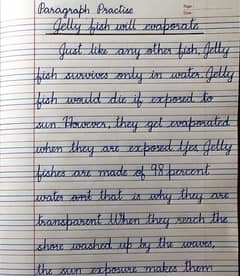 Paragraph Practise
Page:
Date:
Jelly fish will evaporate
Just like any other fish, Jelly
fish survives only in water. Jelly
fish would die if exposed to
sun. However, they get evaporated
when they are exposed. Yes Jelly
fishes are made of 98 percent
water and that is why they are
transparent. When they reach the
shore washed up by the waves,
the sun exposure makes them